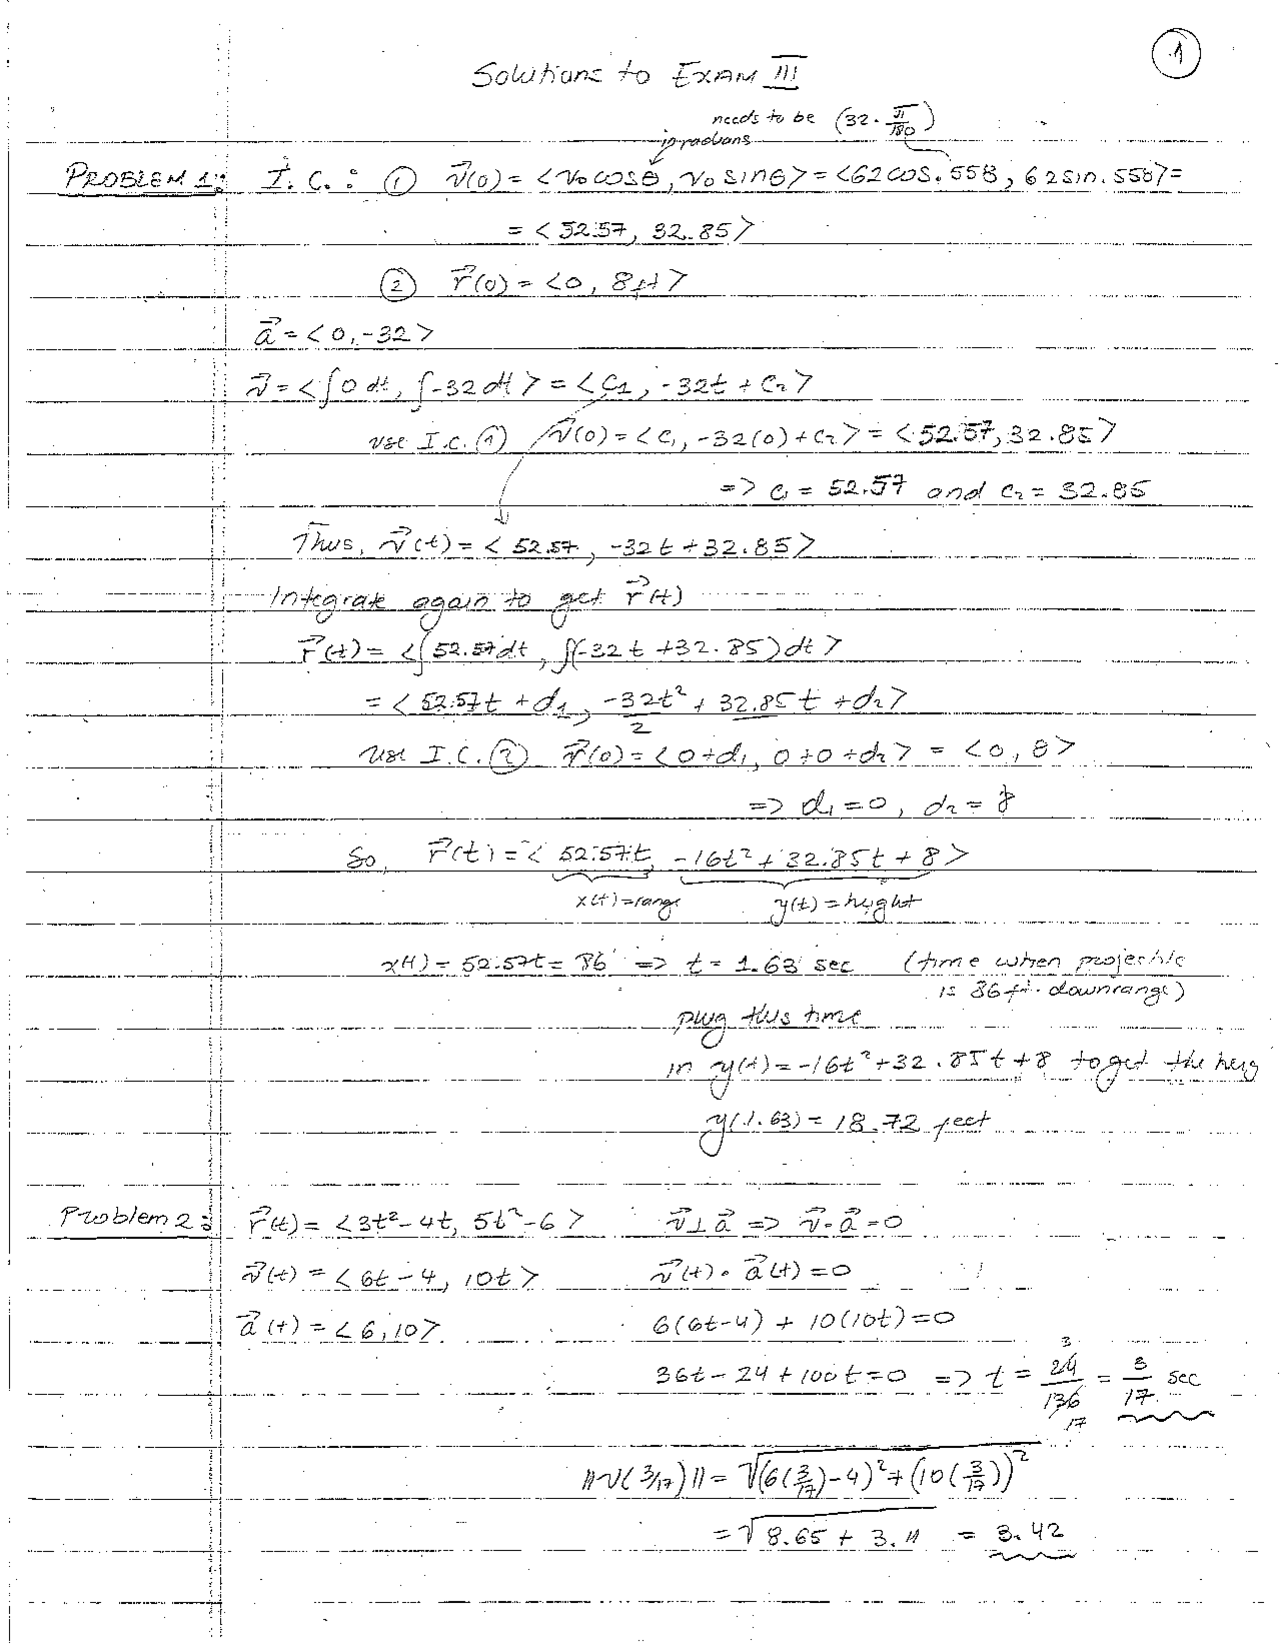 1
Solutions to EXAM III
needs to be (32·π/180)
in radians
PROBLEM 1: I.C.: ① v⃗(0) = <v₀cosθ, v₀sinθ> = <62cos.558, 62sin.558> =
= <52.57, 32.85>
② r⃗(0) = <0, 8ft>
a⃗ = <0, -32>
v⃗ = <∫0dt, ∫-32dt> = <C₁, -32t + C₂>
use I.C.① v⃗(0) = <C₁, -32(0)+C₂> = <52.57, 32.85>
=> C₁ = 52.57 and C₂ = 32.85
Thus, v⃗(t) = <52.57, -32t+32.85>
Integrate again to get r⃗(t)
r⃗(t) = <∫52.57dt, ∫(-32t+32.85)dt>
= <52.57t + d₁, -32t²/2 + 32.85t + d₂>
use I.C.② r⃗(0) = <0+d₁, 0+0+d₂> = <0, 8>
=> d₁=0, d₂=8
So, r⃗(t) = <52.57t, -16t²+32.85t+8>
x(t)=range y(t)=height
x(t) = 52.57t = 86 => t = 1.63 sec (time when projectile
is 86ft. downrange)
plug this time
in y(t) = -16t²+32.85t+8 to get the heig
y(1.63) = 18.72 feet
Problem 2: r⃗(t) = <3t²-4t, 5t²-6> v⃗⊥a⃗ => v⃗·a⃗=0
v⃗(t) = <6t-4, 10t> v⃗(t)·a⃗(t)=0
a⃗(t) = <6, 10> 6(6t-4) + 10(10t)=0
3
36t-24+100t=0 => t = 24/136 = 3/17 sec
17
||v(3/17)|| = √((6(3/17)-4)²+(10(3/17))²)
= √(8.65 + 3.11) = 3.42